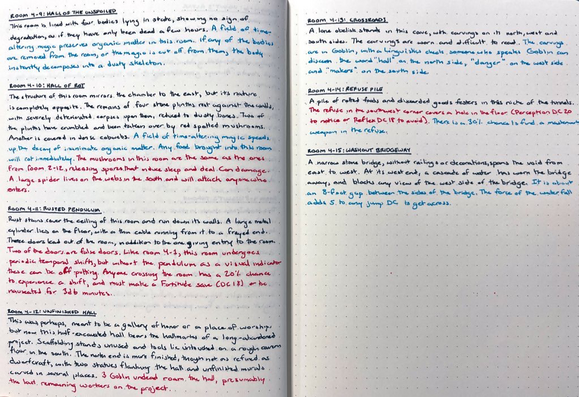 ROOM 4-9: HALL OF THE UNSPOILED
This room is lined with four bodies lying in state, showing no sign of
degradation, as if they have only been dead a few hours. A field of time-
altering magic preserves organic matter in this room. If any of the bodies
are removed from the room, or the magic is cut off from them, the body
instantly decomposes into a dusty skeleton.
ROOM 4-10: HALL OF ROT
The structure of this room mirrors the chamber to the east, but its nature
is completely opposite. The remains of four stone plinths rest against the walls,
with severely deteriorated corpses upon them, reduced to dusty bones. Two of
the plinths have crumbled and been taken over by red spotted mushrooms.
Another is covered in dense cobwebs. A field of time altering magic speeds
up the decay of inanimate organic matter. Any food brought into this room
will rot immediately. The mushrooms in this room are the same as the ones
from Room 2-12, releasing spores that induce sleep and deal Con damage.
A large spider lives on the webs in the south and will attack anyone who
enters.
RUSTED PENDULUM
Rust stains cover the ceiling of this room and run down its walls. A large metal
cylinder lies on the floor, with a thin cable running from it to a frayed end.
Three doors lead out of the room, in addition to the entry to the room.
Two of the doors are false doors. Like room 4-1, this room undergoes
periodic temporal shifts, but without the pendulum as a visual indicator
these can be off putting. Anyone crossing the room has a 20% chance
to experience a shift, and must make a Fortitude save (DC 18) or be
nauseated for 3d6 minutes.
ROOM 4-12: UNFINISHED HALL
This was, perhaps, meant to be a gallery of honor or a place of worship,
but now this half-excavated hall bears the hallmarks of a long-abandoned
project. Scaffolding stands unused and tools lie untouched on a rough
floor in the south. The north end is more finished, though not as refined as
dwarfcraft, with two statues flanking the hall and unfinished murals
carved in several places. 3 Goblin undead roam the hall, presumably
the last remaining workers on the project.
ROOM 4-13: CROSSROADS
A lone obelisk stands in this cave, with carvings on its north, west and
south sides. The carvings are worn and difficult to read. The carvings
are in Goblin, with a Linguistics check someone who speaks Goblin can
discern the word "hall" on the north side, "danger" on the west side
and "makers" on the south side.
ROOM 4-14: REFUSE PILE
A pile of rotted foods and discarded goods festers in this niche of the tunnels.
The refuse in the southwest corner covers a hole in the floor (Perception DC 20
to notice or Reflex DC 18 to avoid). There is a 30% chance to find a
weapon in the refuse.
ROOM 4-15: WASHOUT BRIDGEWAY
A narrow stone bridge, without railings or decorations, spans the void from
east to west. At its west end, a cascade of water has worn the bridge
away, and blocks any view of the west side of the bridge. It is about
an 8-foot gap between the sides of the bridge. The force of the waterfall
adds 5 to any jump DC to get across.